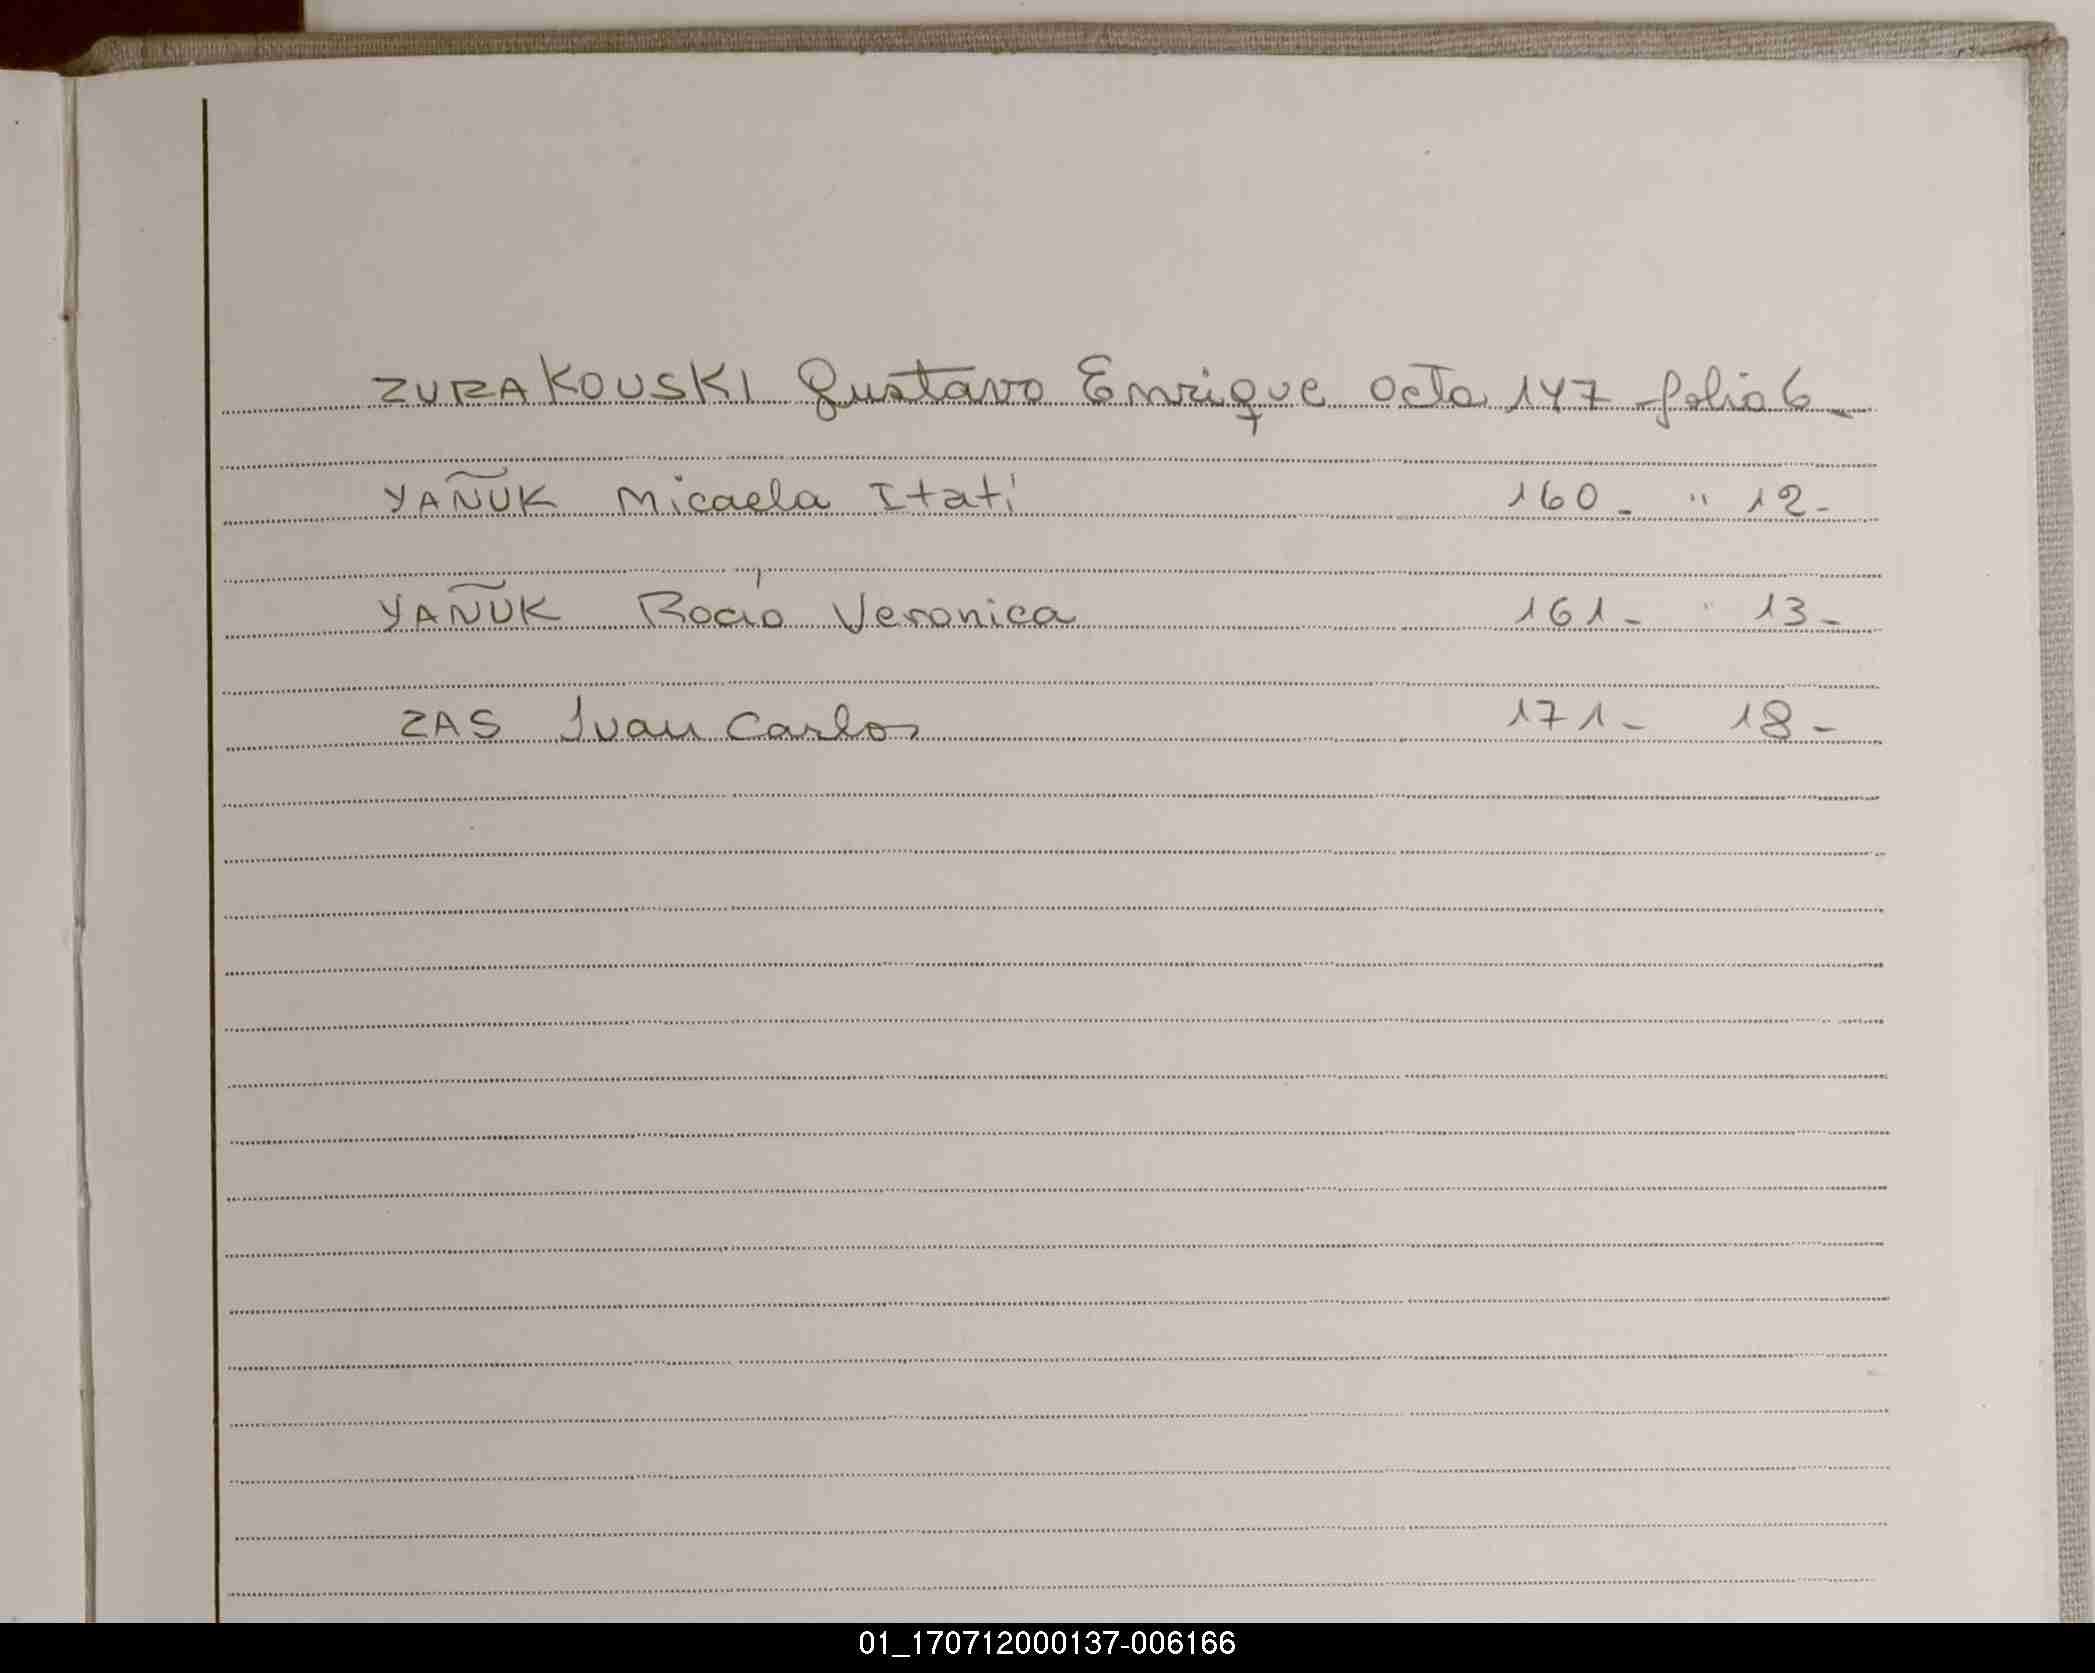 ZURAKOUSKI Gustavo Enrique acta 147 folio 6-
YAÑUK Micaela Itatí 160- " 12-
YAÑUK Rocío Veronica 161- " 13-
ZAS Juan Carlos 171- 18-
01_170712000137-006166